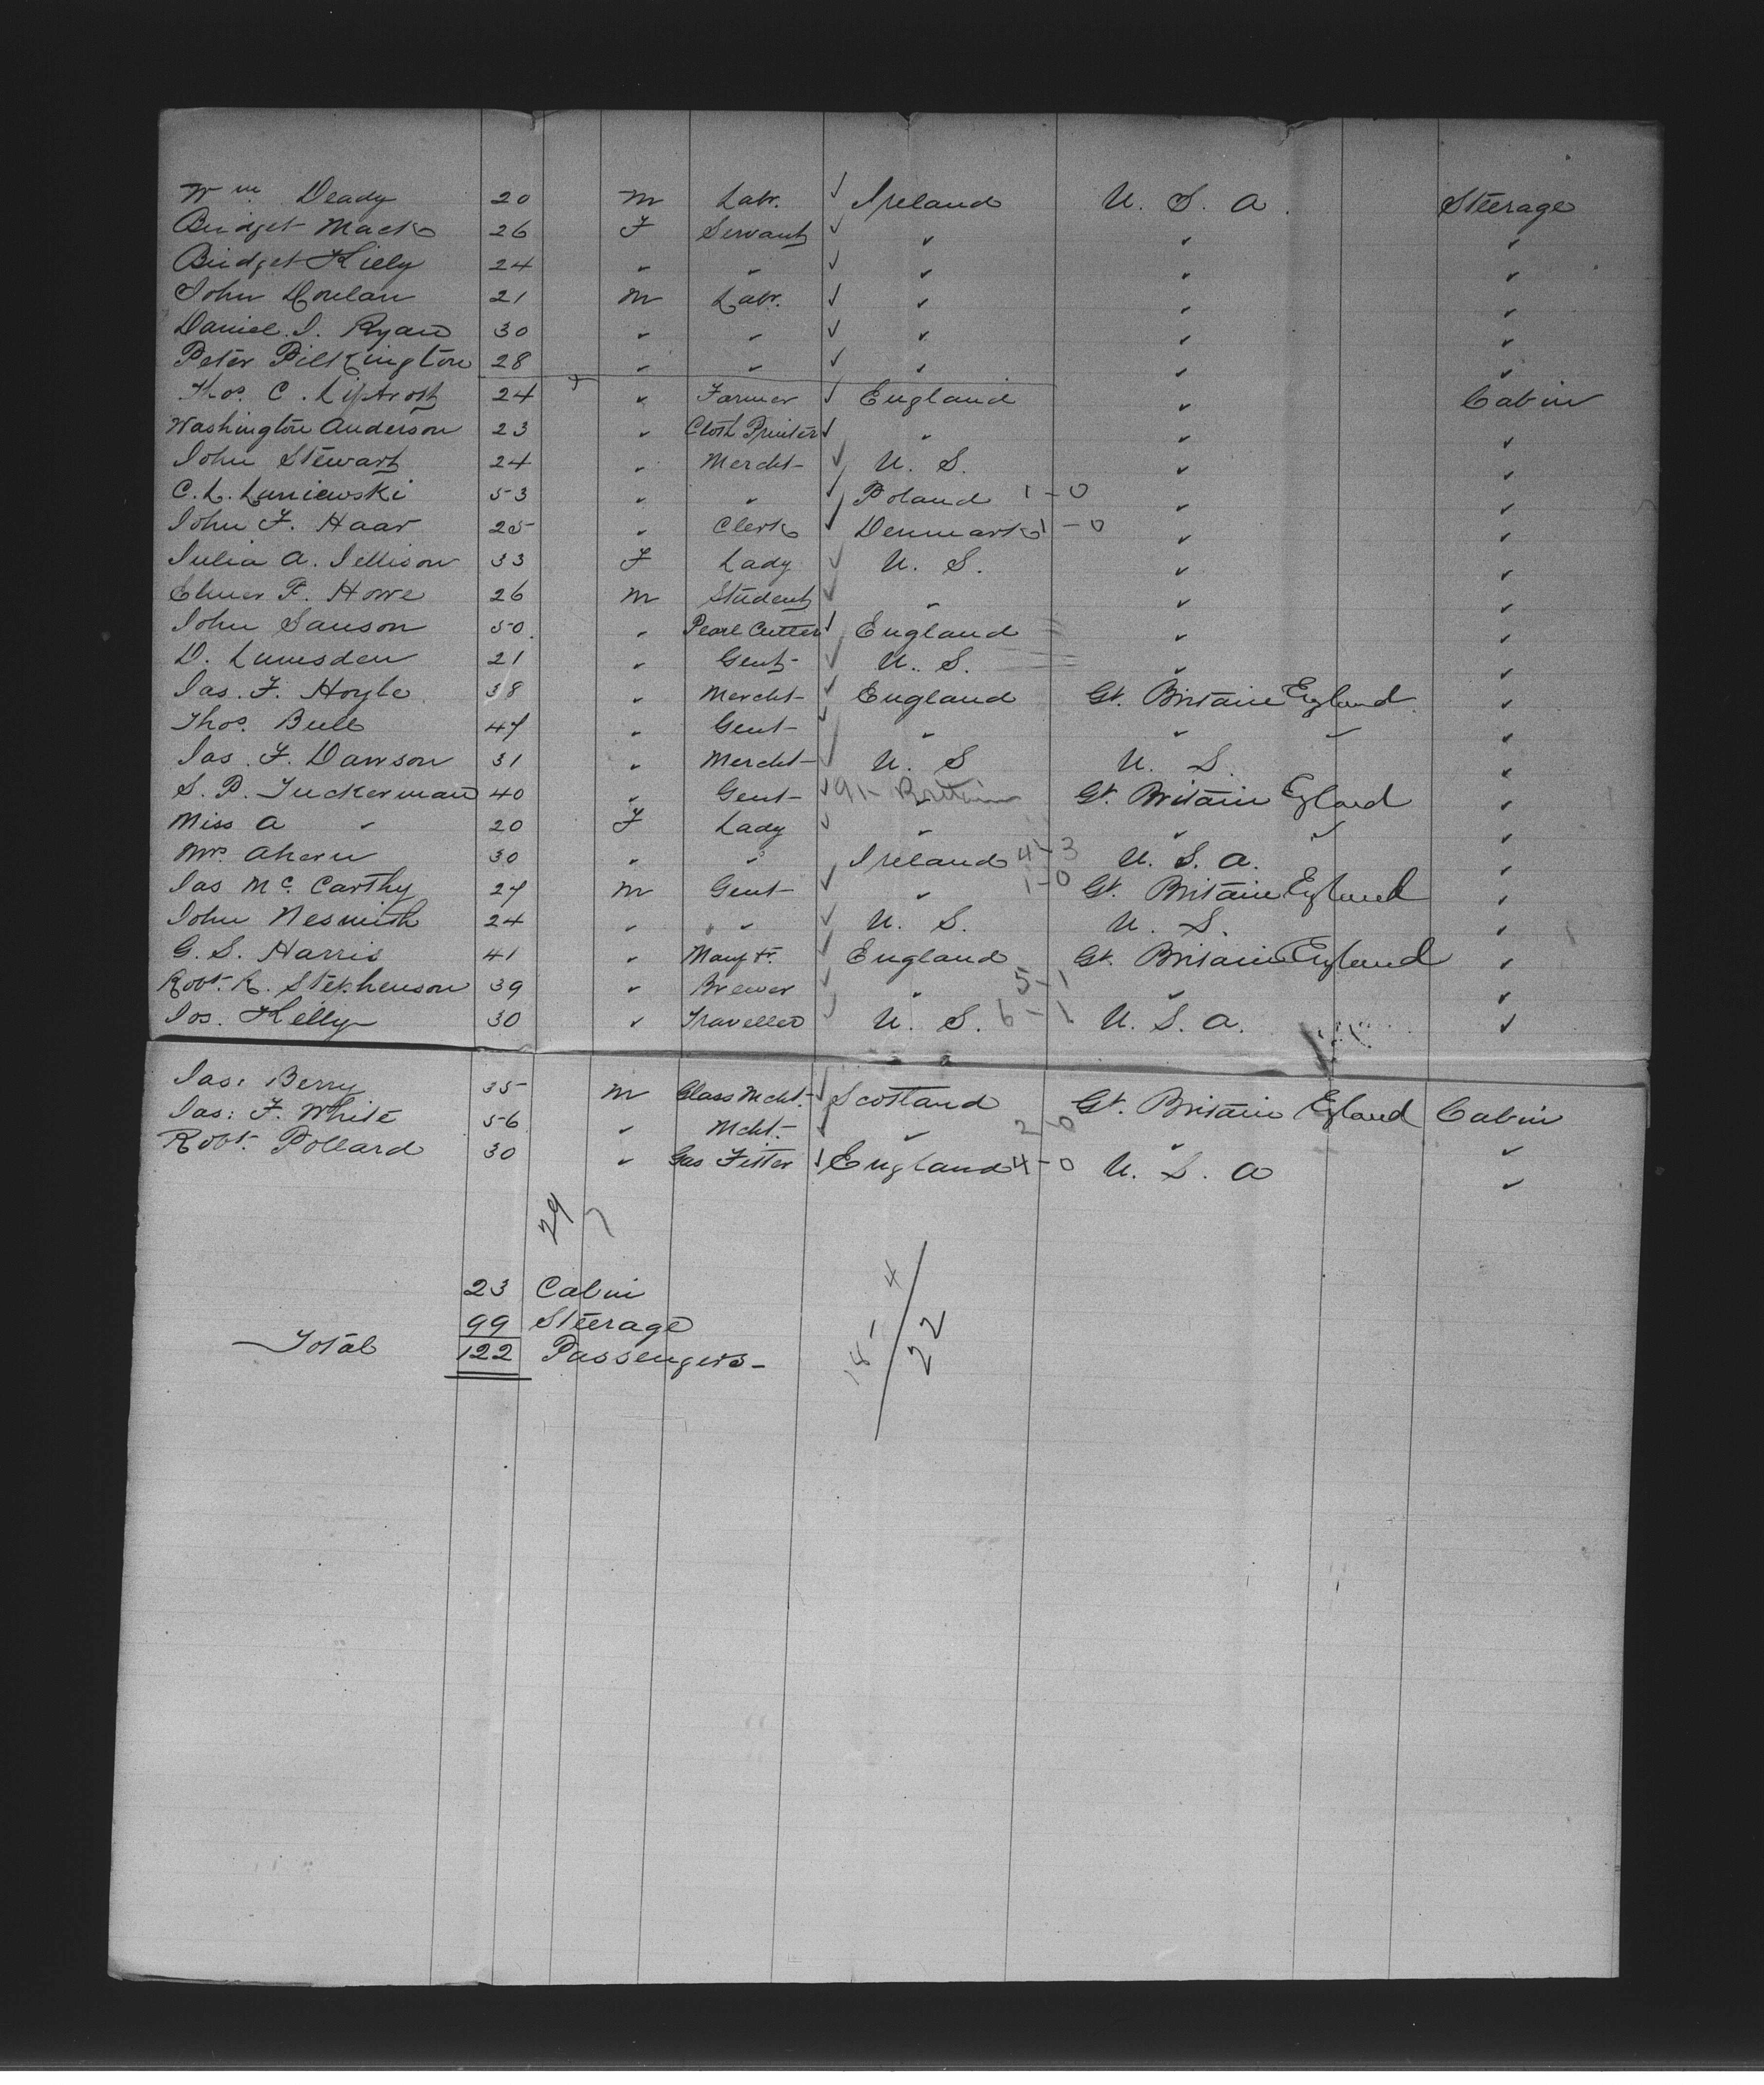 Wm. Deady 20 M Labr. ✓ Ireland U. S. A. Steerage
Bridget Mack 26 F Servant ✓ " " "
Bridget Kiely 24 " " ✓ " " "
John Donlan 21 M Labr. ✓ " " "
Daniel J. Ryan 30 " " ✓ " " "
Peter Pilkington 28 " " ✓ " " "
Thos. C. Liptrott 24 " Farmer ✓ England " Cabin
Washington Anderson 23 " Cloth Printer ✓ " " "
John Stewart 24 " Mercht ✓ U. S. " "
C. L. Luniewski 53 " " ✓ Poland 1-0 " "
John F. Haar 25 " Clerk ✓ Denmark 1-0 " "
Julia A. Jellison 33 F Lady ✓ U. S. " "
Elmer P. Howe 26 M Student ✓ " " "
John Sanson 50 " Pearl Cutter ✓ England " "
D. Lumsden 21 " Gent ✓ U. S. " "
Jas. F. Hoyle 38 " Mercht ✓ England Gt. Britain England "
Thos. Bull 47 " Gent ✓ " " " "
Jas. F. Dawson 31 " Mercht ✓ U. S U. S. "
S. P. Tuckerman 40 " Gent ✓ Gt Brittain Gt. Britain England "
Miss A " 20 F Lady ✓ " " " "
Mrs. Ahern 30 " " ✓ Ireland 4-3 U. S. A. "
Jas Mc. Carthy 27 M Gent ✓ " 1-0 Gt. Britain England "
John Nesmith 24 " " ✓ U. S. U. S. "
G. S. Harris 41 " Manfr. ✓ England Gt. Britain England "
Robt. R. Stephenson 39 " Brewer ✓ " 5-1 " "
Jos. Kelly 30 " Traveller ✓ U. S. 6-1 U. S. A. "
Jas. Berry 35 M Glass Mcht. ✓ Scotland Gt. Britain England Cabin
Jas. F. White 56 " Mcht. ✓ " 2-0 " "
Robt. Pollard 30 " Gas Fitter ✓ England 4-0 U. S. A "
29
23 Cabin
99 Steerage
Total 122 Passengers
18 - 4
22